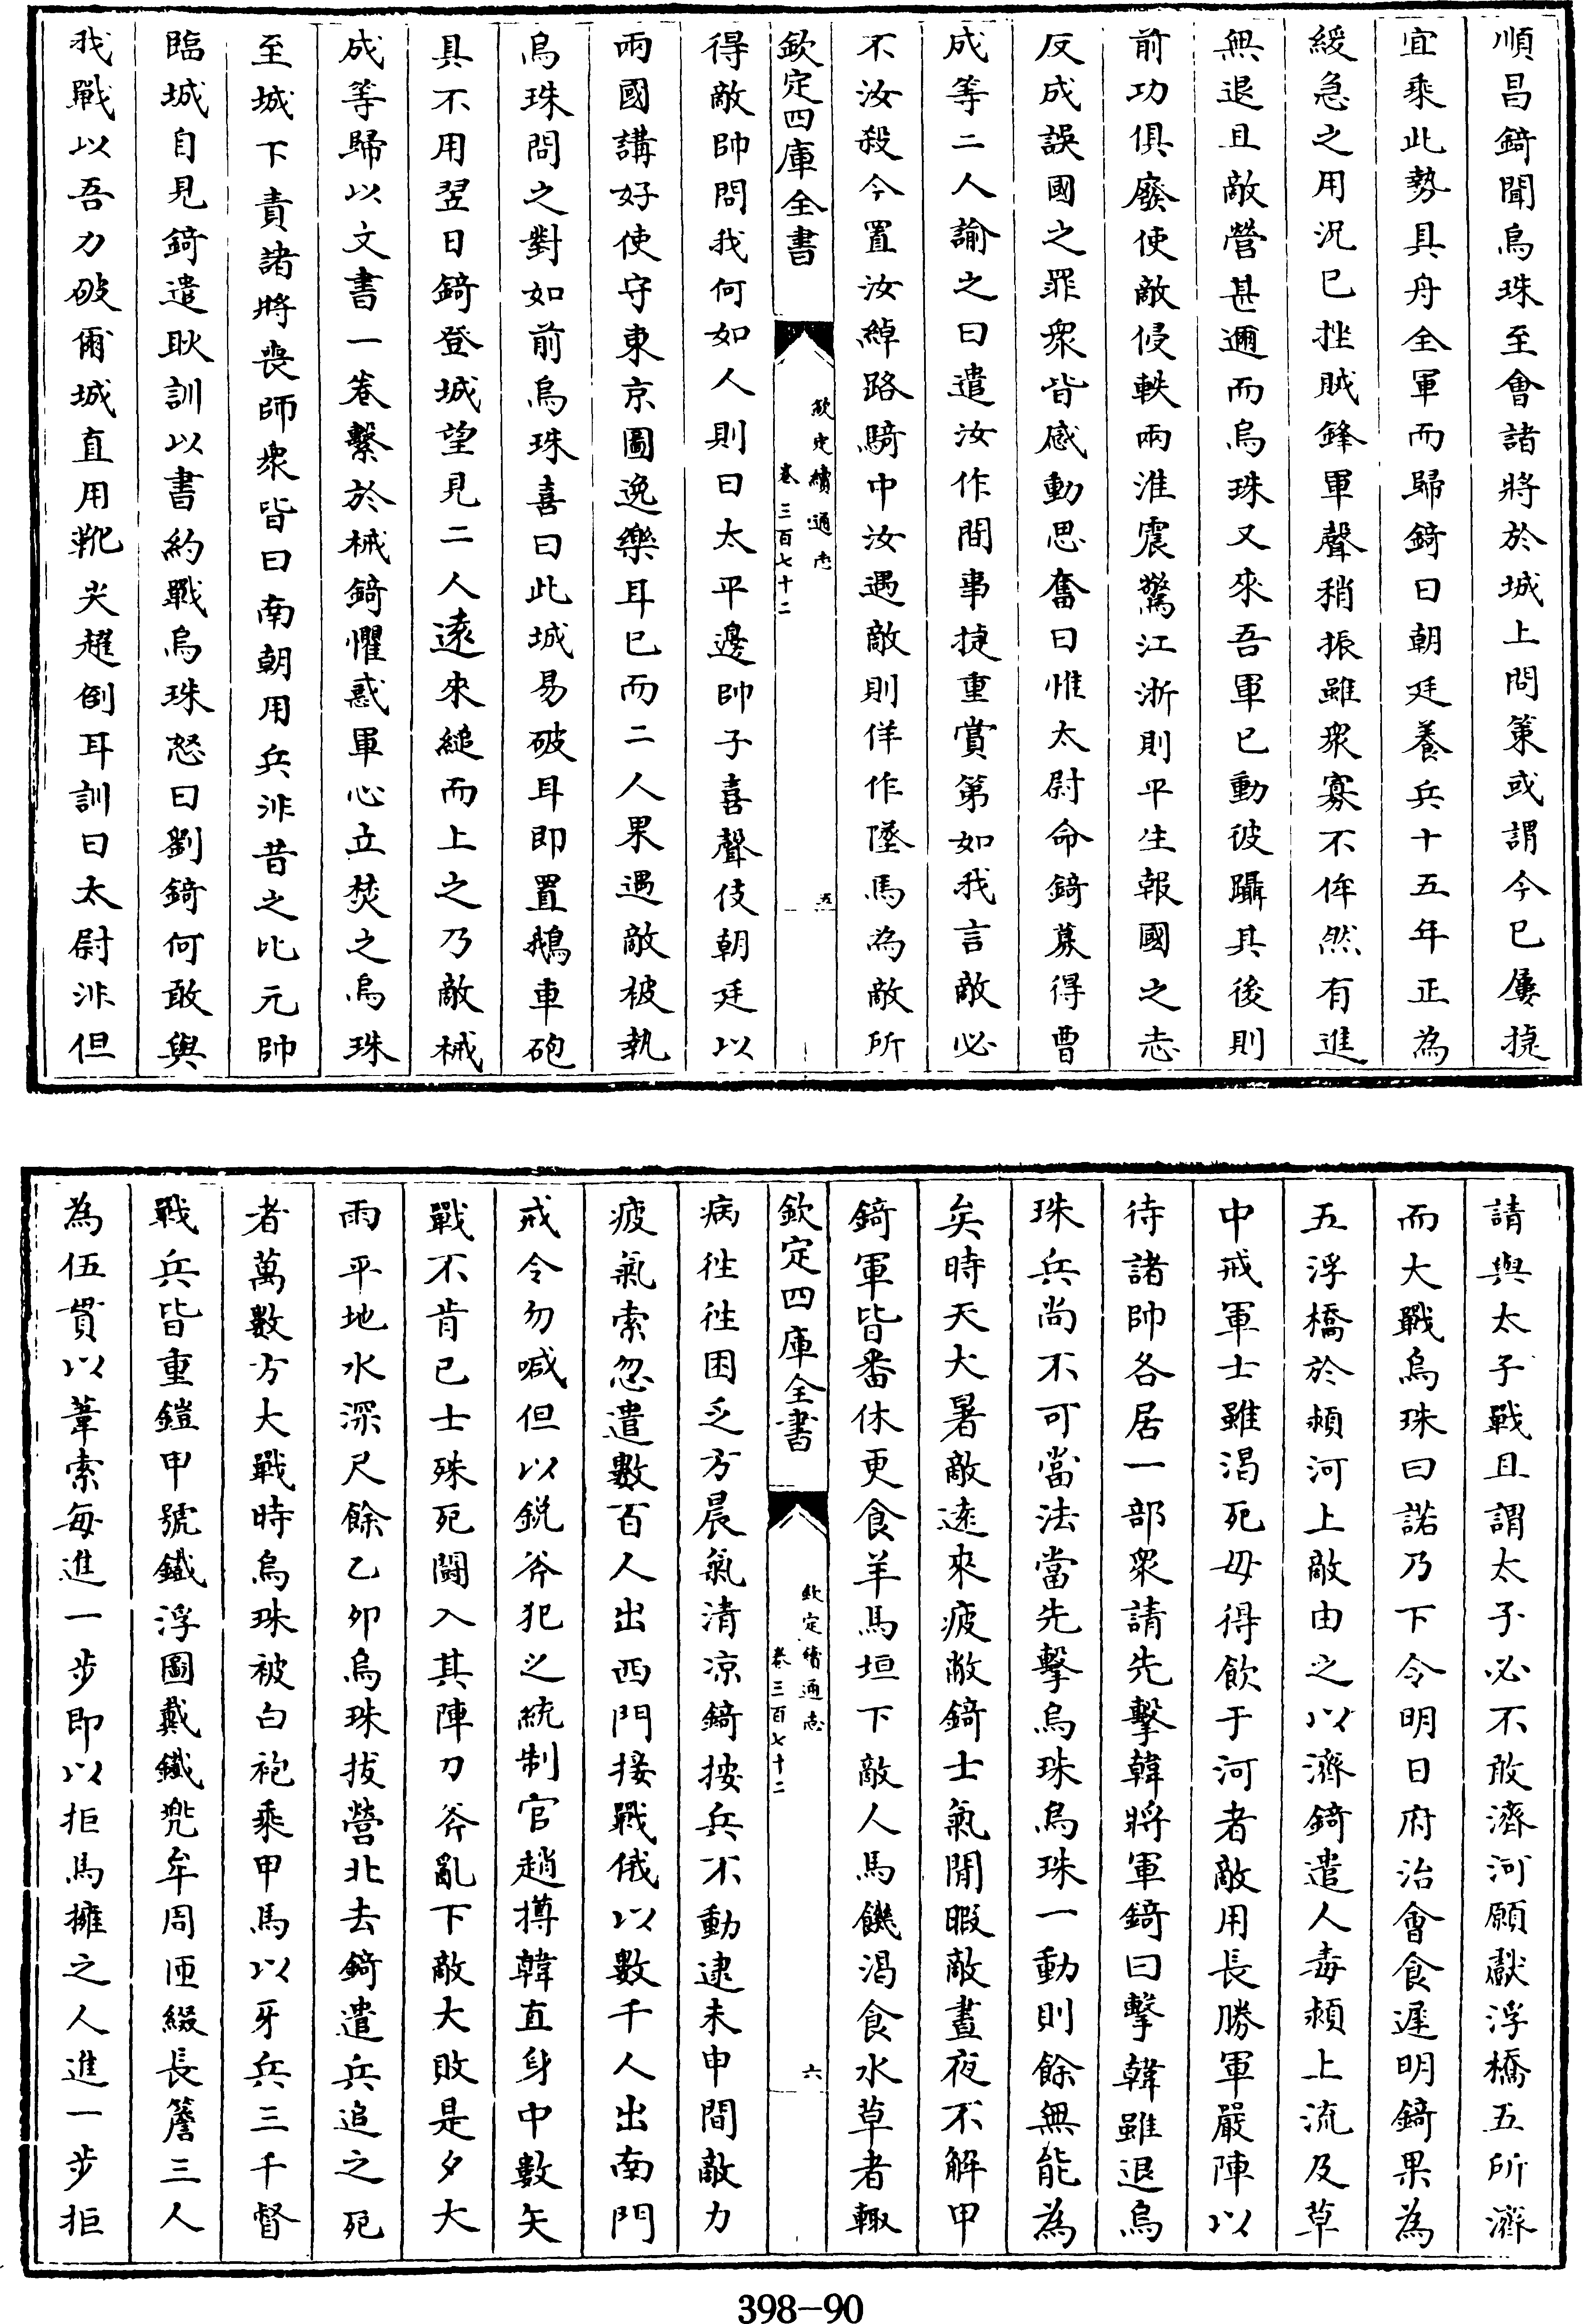 順昌錡聞烏珠至會諸將於城上問策或謂今已屢捷
宜乗此勢具舟全軍而歸錡曰朝廷養兵十五年正為
緩急之用況已挫賊鋒軍聲稍振雖衆寡不侔然有進
無退且敵營甚邇而烏珠又來吾軍已動彼躡其後則
前功俱廢使敵侵軼兩淮震驚江浙則平生報國之志
反成誤國之罪衆皆感動思奮曰惟太尉命錡募得曹
成等二人諭之曰遣汝作間事捷重賞第如我言敵必
不汝殺今置汝綽路騎中汝遇敵則佯作墜馬為敵所
欽定四庫全書
欽定續通志
卷三百七十二
五
得敵帥問我何如人則曰太平邊帥子喜聲伎朝廷以
兩國講好使守東京圖逸樂耳已而二人果遇敵被執
烏珠問之對如前烏珠喜曰此城易破耳即置鵝車砲
具不用翌日錡登城望見二人遠來縋而上之乃敵械
成等歸以文書一卷繫於械錡懼惑軍心立焚之烏珠
至城下責諸將喪師衆皆曰南朝用兵非昔之比元帥
臨城自見錡遣耿訓以書約戰烏珠怒曰劉錡何敢與
我戰以吾力破爾城直用靴尖趯倒耳訓曰太尉非但
請與太子戰且謂太子必不敢濟河願獻浮橋五所濟
而大戰烏珠曰諾乃下令明日府治會食遲明錡果為
五浮橋於潁河上敵由之以濟錡遣人毒潁上流及草
中戒軍士雖渴死毋得飲于河者敵用長勝軍嚴陣以
待諸帥各居一部衆請先擊韓將軍錡曰擊韓雖退烏
珠兵尚不可當法當先擊烏珠烏珠一動則餘無能為
矣時天大暑敵遠來疲敝錡士氣閒暇敵晝夜不解甲
錡軍皆番休更食羊馬垣下敵人馬饑渴食水草者輙
欽定四庫全書
欽定續通志
卷三百七十二
六
病徃徃困乏方晨氣清凉錡按兵不動逮未申間敵力
疲氣索忽遣數百人出西門接戰俄以數千人出南門
戒令勿喊但以鋭斧犯之統制官趙撙韓直身中數矢
戰不肯已士殊死鬬入其陣刀斧亂下敵大敗是夕大
雨平地水深尺餘乙夘烏珠拔營北去錡遣兵追之死
者萬數方大戰時烏珠被白袍乘甲馬以牙兵三千督
戰兵皆重鎧甲號鐵浮圖戴鐵兜牟周匝綴長簷三人
為伍貫以葦索每進一步即以拒馬擁之人進一步拒
398-90